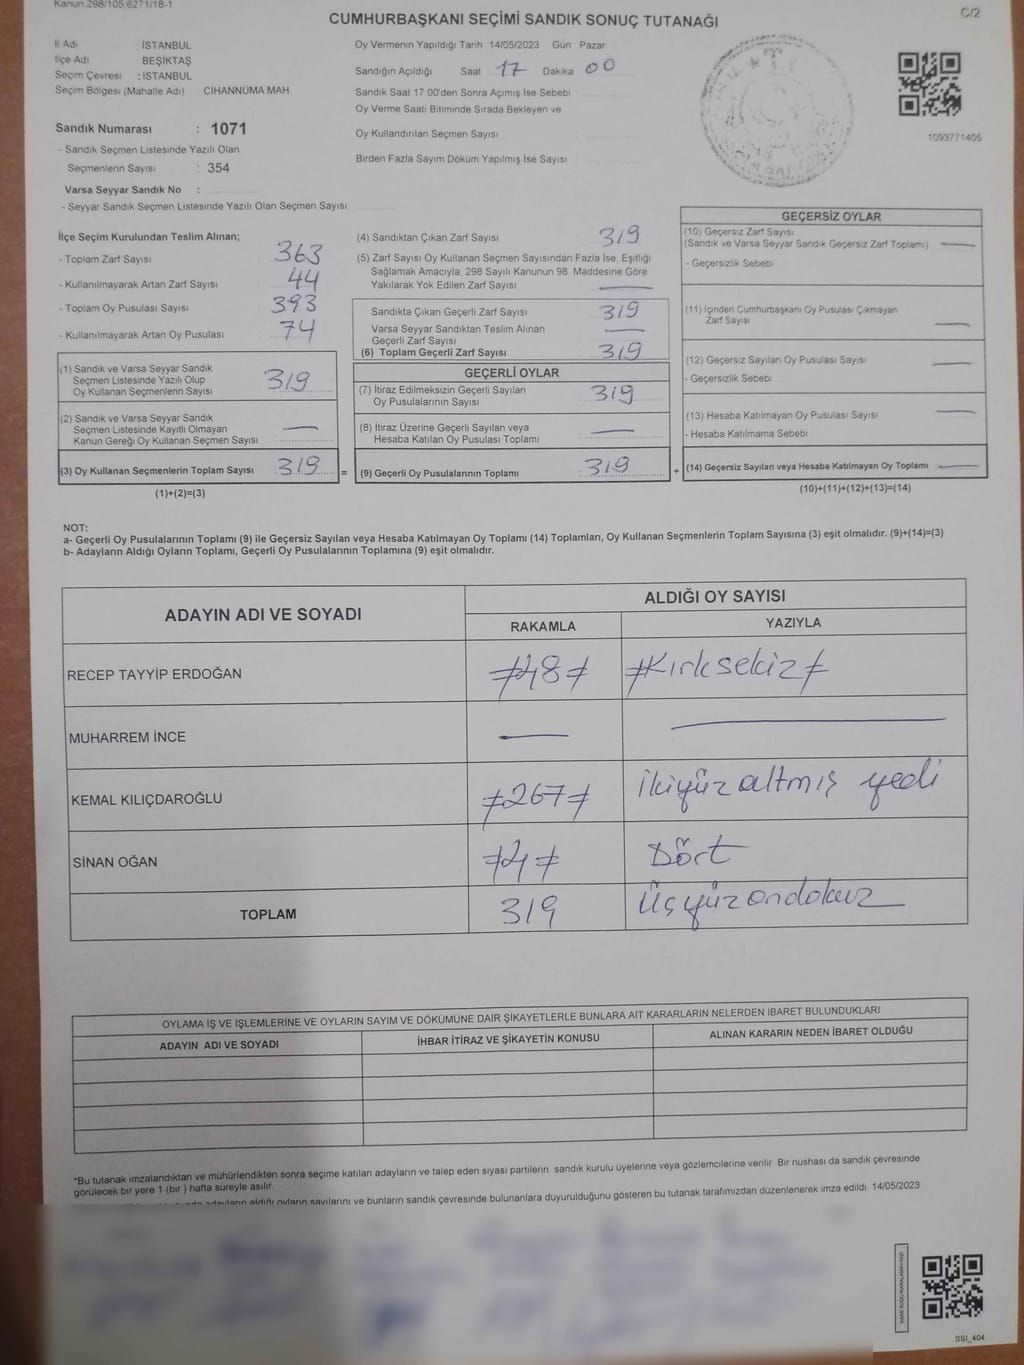 Kanun 298/105.6271/18-1
CUMHURBAŞKANI SEÇİMİ SANDIK SONUÇ TUTANAĞI
C/2
İl Adı : İSTANBUL
İlçe Adı : BEŞİKTAŞ
Seçim Çevresi : İSTANBUL
Seçim Bölgesi (Mahalle Adı) CİHANNÜMA MAH.
Sandık Numarası : 1071
- Sandık Seçmen Listesinde Yazılı Olan
Seçmenlerin Sayısı : 354
Varsa Seyyar Sandık No :
- Seyyar Sandık Seçmen Listesinde Yazılı Olan Seçmen Sayısı
Oy Vermenin Yapıldığı Tarih 14/05/2023 Gün Pazar
Sandığın Açıldığı Saat 17 Dakika 00
Sandık Saat 17 00'den Sonra Açımış İse Sebebi
Oy Verme Saati Bitiminde Sırada Bekleyen ve
Oy Kullandırılan Seçmen Sayısı
Birden Fazla Sayım Döküm Yapılmış İse Sayısı
1093771405
İlçe Seçim Kurulundan Teslim Alınan;
- Toplam Zarf Sayısı : 363
- Kullanılmayarak Artan Zarf Sayısı : 44
- Toplam Oy Pusulası Sayısı : 393
- Kullanılmayarak Artan Oy Pusulası : 74
(1) Sandık ve Varsa Seyyar Sandık
Seçmen Listesinde Yazılı Olup
Oy Kullanan Seçmenlerin Sayısı 319
(2) Sandık ve Varsa Seyyar Sandık
Seçmen Listesinde Kayıtlı Olmayan
Kanun Gereği Oy Kullanan Seçmen Sayısı —
(3) Oy Kullanan Seçmenlerin Toplam Sayısı : 319 =
(1)+(2)=(3)
(4) Sandıktan Çıkan Zarf Sayısı 319
(5) Zarf Sayısı Oy Kullanan Seçmen Sayısından Fazla İse, Eşitliği
Sağlamak Amacıyla, 298 Sayılı Kanunun 98. Maddesine Göre
Yakılarak Yok Edilen Zarf Sayısı —
Sandıkta Çıkan Geçerli Zarf Sayısı 319
Varsa Seyyar Sandıktan Teslim Alınan
Geçerli Zarf Sayısı —
(6) Toplam Geçerli Zarf Sayısı 319
GEÇERLİ OYLAR
(7) İtiraz Edilmeksizin Geçerli Sayılan
Oy Pusulalarının Sayısı 319
(8) İtiraz Üzerine Geçerli Sayılan veya
Hesaba Katılan Oy Pusulası Toplamı —
(9) Geçerli Oy Pusulalarının Toplamı : 319 +
GEÇERSİZ OYLAR
(10) Geçersiz Zarf Sayısı
(Sandık ve Varsa Seyyar Sandık Geçersiz Zarf Toplamı) —
- Geçersizlik Sebebi
(11) İçinden Cumhurbaşkanı Oy Pusulası Çıkmayan
Zarf Sayısı —
(12) Geçersiz Sayılan Oy Pusulası Sayısı —
- Geçersizlik Sebebi
(13) Hesaba Katılmayan Oy Pusulası Sayısı —
- Hesaba Katılmama Sebebi
(14) Geçersiz Sayılan veya Hesaba Katılmayan Oy Toplamı —
(10)+(11)+(12)+(13)=(14)
NOT:
a- Geçerli Oy Pusulalarının Toplamı (9) ile Geçersiz Sayılan veya Hesaba Katılmayan Oy Toplamı (14) Toplamları, Oy Kullanan Seçmenlerin Toplam Sayısına (3) eşit olmalıdır. (9)+(14)=(3)
b- Adayların Aldığı Oyların Toplamı, Geçerli Oy Pusulalarının Toplamına (9) eşit olmalıdır.
ADAYIN ADI VE SOYADI
ALDIĞI OY SAYISI
RAKAMLA YAZIYLA
RECEP TAYYİP ERDOĞAN ≠48≠ ≠Kırksekiz≠
MUHARREM İNCE — —
KEMAL KILIÇDAROĞLU ≠267≠ İkiyüz altmış yedi
SİNAN OĞAN ≠4≠ Dört
TOPLAM 319 Üçyüz ondokuz
OYLAMA İŞ VE İŞLEMLERİNE VE OYLARIN SAYIM VE DÖKÜMÜNE DAİR ŞİKAYETLERLE BUNLARA AİT KARARLARIN NELERDEN İBARET BULUNDUKLARI
ADAYIN ADI VE SOYADI İHBAR İTİRAZ VE ŞİKAYETİN KONUSU ALINAN KARARIN NEDEN İBARET OLDUĞU
*Bu tutanak imzalandıktan ve mühürlendikten sonra seçime katılan adayların ve talep eden siyasi partilerin sandık kurulu üyelerine veya gözlemcilerine verilir Bir nüshası da sandık çevresinde
görülecek bir yere 1 (bir ) hafta süreyle asılır.
adayların aldığı oyların sayılarını ve bunların sandık çevresinde bulunanlara duyurulduğunu gösteren bu tutanak tarafımızdan düzenlenerek imza edildi. 14/05/2023
KARE KODU KARALAMAYINIZ!
SSI_404